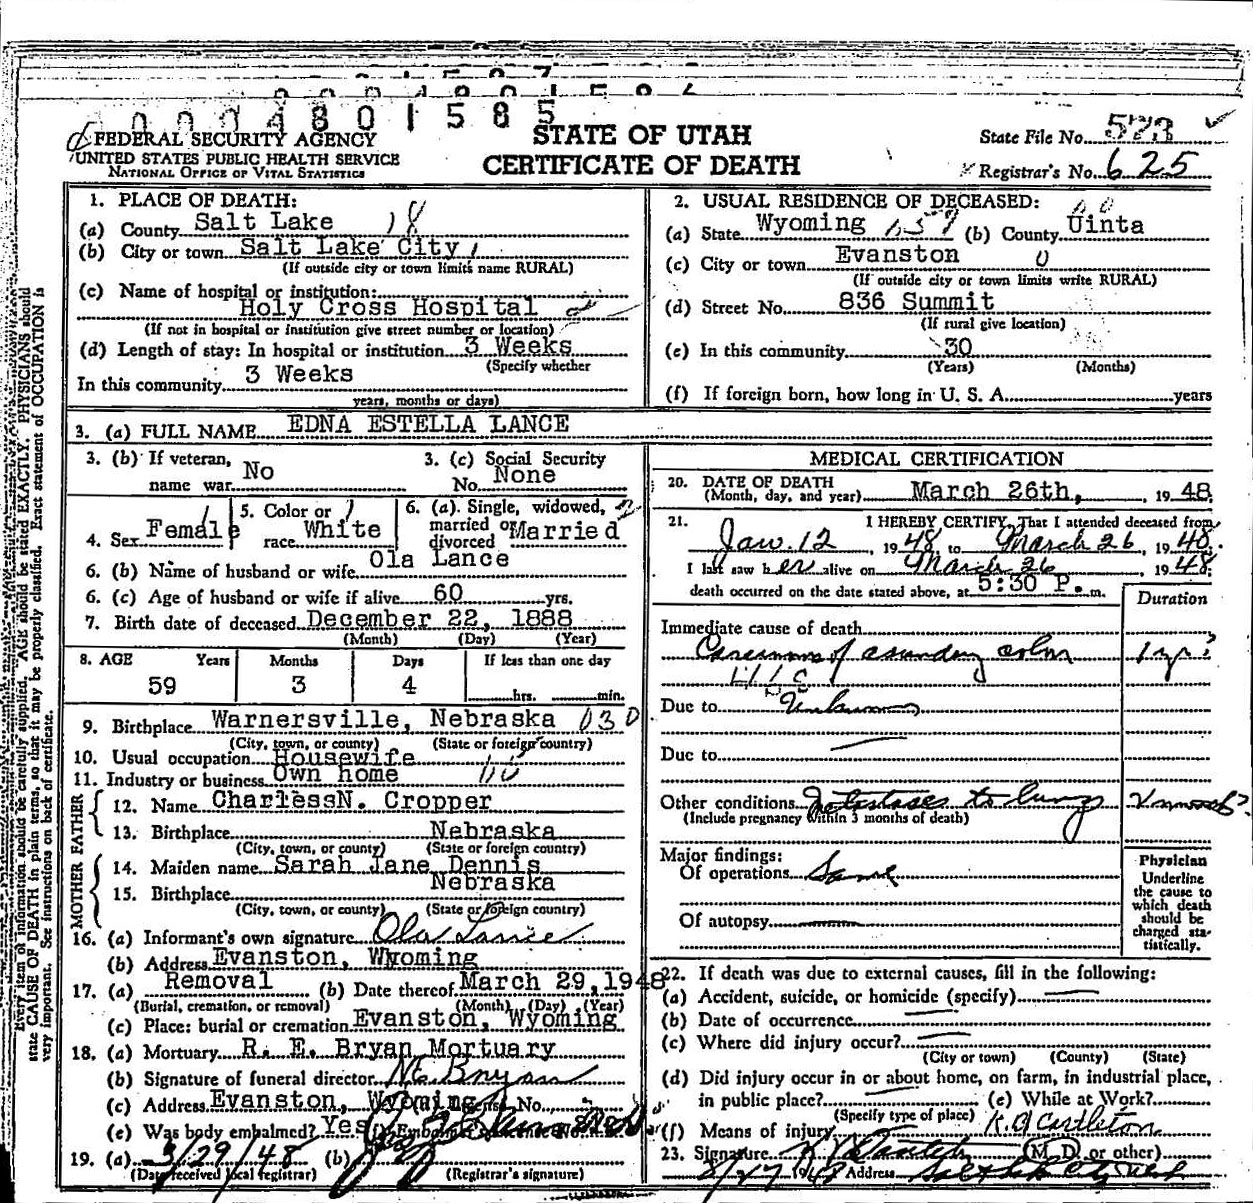 0004801585
FEDERAL SECURITY AGENCY
UNITED STATES PUBLIC HEALTH SERVICE
NATIONAL OFFICE OF VITAL STATISTICS
STATE OF UTAH
CERTIFICATE OF DEATH
State File No. 573
Registrar's No. 625
1. PLACE OF DEATH:
(a) County Salt Lake 18
(b) City or town Salt Lake City
(If outside city or town limits name RURAL)
(c) Name of hospital or institution:
Holy Cross Hospital
(If not in hospital or institution give street number or location)
(d) Length of stay: In hospital or institution 3 Weeks
(Specify whether
In this community 3 Weeks
years, months or days)
2. USUAL RESIDENCE OF DECEASED:
(a) State Wyoming (b) County Uinta
(c) City or town Evanston
(If outside city or town limits write RURAL)
(d) Street No. 836 Summit
(If rural give location)
(e) In this community 30
(Years) (Months)
(f) If foreign born, how long in U. S. A. years
3. (a) FULL NAME EDNA ESTELLA LANCE
3. (b) If veteran, name war No
3. (c) Social Security No. None
4. Sex Female
5. Color or race White
6. (a). Single, widowed, married or divorced Married
6. (b) Name of husband or wife Ola Lance
6. (c) Age of husband or wife if alive 60 yrs.
7. Birth date of deceased December 22, 1888
(Month) (Day) (Year)
8. AGE Years Months Days If less than one day
59 3 4 hrs. min.
9. Birthplace Warnersville, Nebraska 030
(City, town, or county) (State or foreign country)
10. Usual occupation Housewife
11. Industry or business Own home
FATHER
12. Name CharlessN. Cropper
13. Birthplace Nebraska
(City, town, or county) (State or foreign country)
MOTHER
14. Maiden name Sarah Jane Dennis
15. Birthplace Nebraska
(City, town, or county) (State or foreign country)
16. (a) Informant's own signature Ola Lance
(b) Address Evanston, Wyoming
17. (a) Removal (b) Date thereof March 29, 1948
(Burial, cremation, or removal) (Month) (Day) (Year)
(c) Place: burial or cremation Evanston, Wyoming
18. (a) Mortuary R. E. Bryan Mortuary
(b) Signature of funeral director Bryan
(c) Address Evanston, Wyoming No.
(e) Was body embalmed? Yes
19. (a) 3/29/48 (b)
(Date received local registrar) (Registrar's signature)
MEDICAL CERTIFICATION
20. DATE OF DEATH
(Month, day, and year) March 26th, , 1948
21. I HEREBY CERTIFY, That I attended deceased from
Jan. 12, 1948, to March 26, 1948.
I last saw her alive on March 26 1948;
death occurred on the date stated above, at 5:30 P. m.
Duration
Immediate cause of death
Carcinoma of ascending colon 1 yr?
Due to Unknown
Due to
Other conditions Metastases to lungs
(Include pregnancy within 3 months of death)
Major findings:
Of operations Same
Of autopsy
Physician
Underline
the cause to
which death
should be
charged sta-
tistically.
22. If death was due to external causes, fill in the following:
(a) Accident, suicide, or homicide (specify)
(b) Date of occurrence
(c) Where did injury occur?
(City or town) (County) (State)
(d) Did injury occur in or about home, on farm, in industrial place,
in public place? (e) While at Work?
(Specify type of place)
(f) Means of injury
23. Signature (M. D. or other)
3/27 1948 Address Salt Lake City, Utah
Every item of information should be carefully supplied. AGE should be stated EXACTLY. PHYSICIANS should
state CAUSE OF DEATH in plain terms, so that it may be properly classified. Exact statement of OCCUPATION is
very important. See instructions on back of certificate.